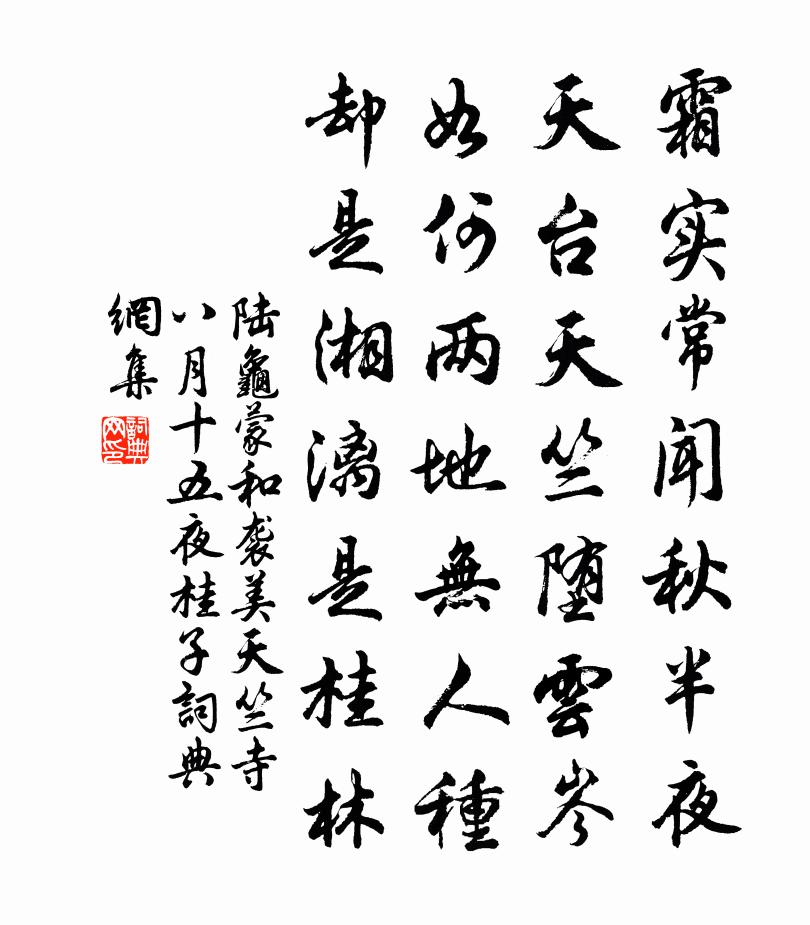 霜实常闻秋半夜
天台天竺堕雲岑
如何两地無人種
却是湘漓是桂林
陆龜蒙和袭美天竺寺
八月十五夜桂子詞典
網集
詞典
网印